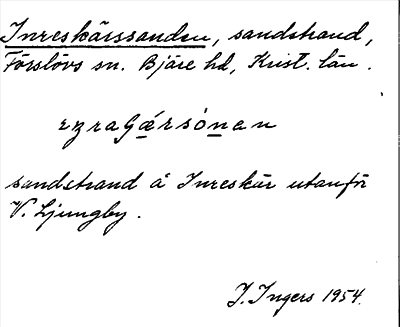 Inreskärssanden, sandstrand,
Förslövs sn. Bjäre hd, Krist. län.
ezragǽrsónen
sandstrand å Inreskär utanför
V. Ljungby.
I. Ingers 1954.